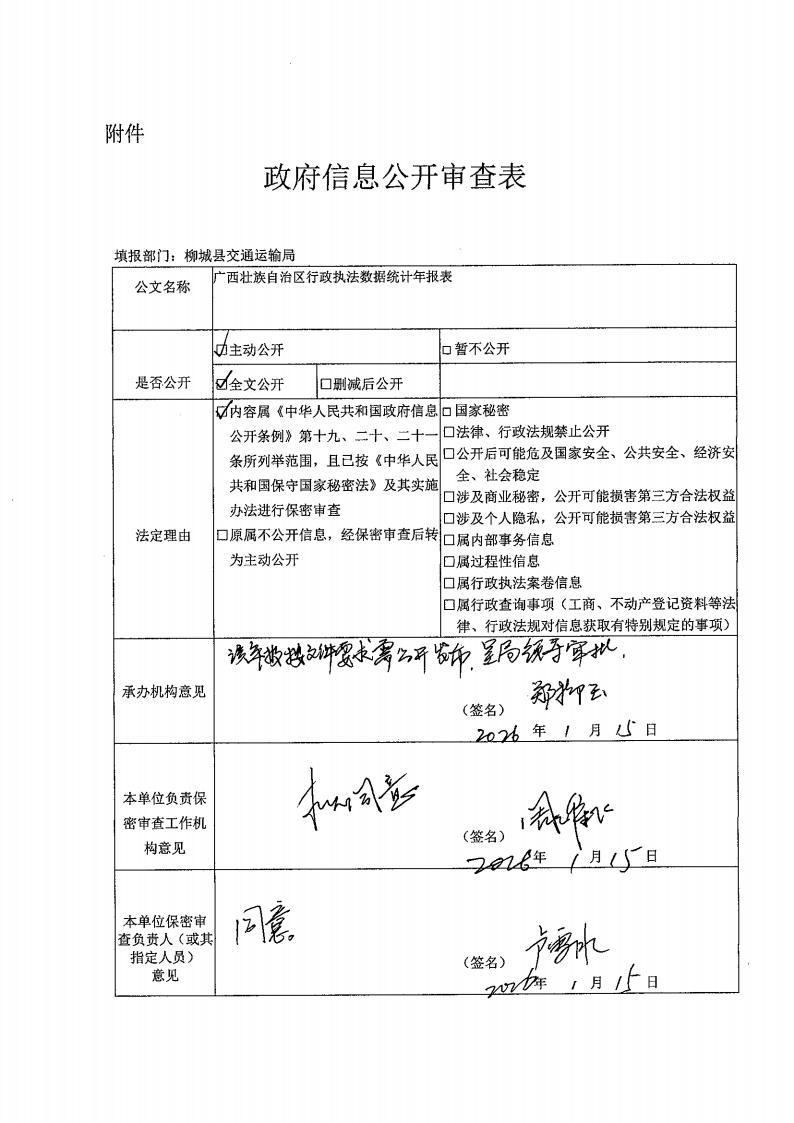 附件
政府信息公开审查表
填报部门：柳城县交通运输局
公文名称
广西壮族自治区行政执法数据统计年报表
是否公开
☑主动公开
□暂不公开
☑全文公开
□删减后公开
法定理由
☑内容属《中华人民共和国政府信息
公开条例》第十九、二十、二十一
条所列举范围，且已按《中华人民
共和国保守国家秘密法》及其实施
办法进行保密审查
□原属不公开信息，经保密审查后转
为主动公开
□国家秘密
□法律、行政法规禁止公开
□公开后可能危及国家安全、公共安全、经济安
全、社会稳定
□涉及商业秘密，公开可能损害第三方合法权益
□涉及个人隐私，公开可能损害第三方合法权益
□属内部事务信息
□属过程性信息
□属行政执法案卷信息
□属行政查询事项（工商、不动产登记资料等法
律、行政法规对信息获取有特别规定的事项）
承办机构意见
该年报按文件要求需公开发布，呈局领导审批，
（签名）
2026 年 1 月 15 日
本单位负责保
密审查工作机
构意见
同意
（签名）
2026年 1 月 15 日
本单位保密审
查负责人（或其
指定人员）
意见
同意。
（签名）
2026年 1 月 15 日